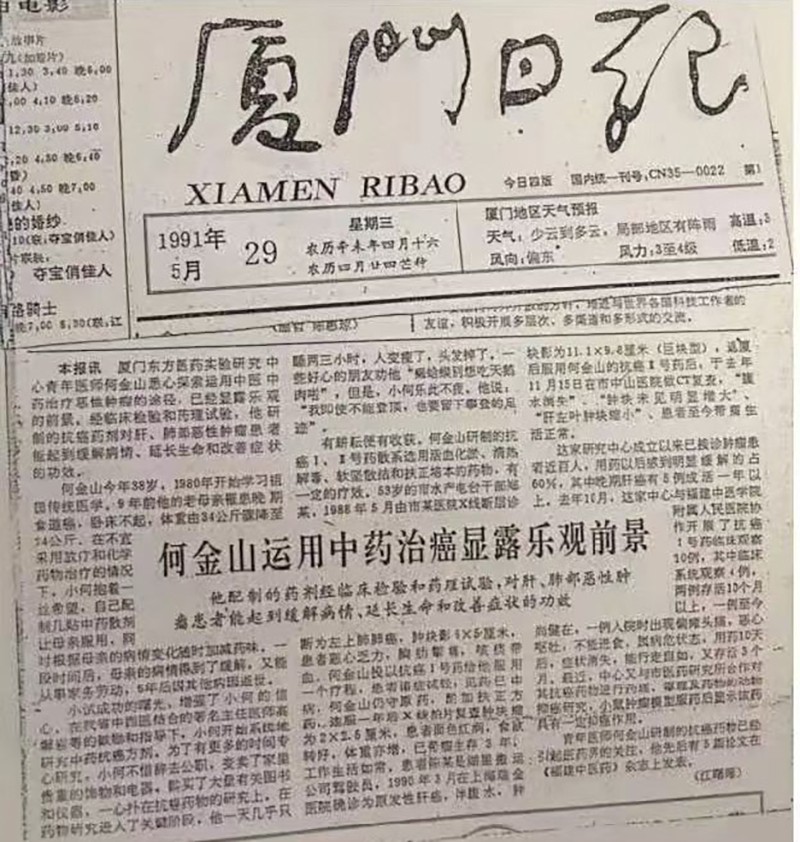 自电影
故事片
九(加短片)
1,30 3,40 晚6,00
佳人)
,00 4,10 晚6,20
12,30 3,00 5,10
,20 4,50 晚6,40
40 4,50 晚7,00
佳人)
的婚纱
10(联:夺宝俏佳人)
片联映:
夺宝俏佳人
路骑士
晚7,00 8,30(联:江
厦门日报
XIAMEN RIBAO
今日四版 国内统一刊号,CN35—0022 第1
1991年
5月
29
星期三
农历辛未年四月十六
农历四月廿四芒种
厦门地区天气预报
天气:少云到多云,局部地区有阵雨 高温:3
风向:偏东 风力:3至4级 低温:2
友谊,积极开展多层次、多渠道和多形式的交流。
何金山运用中药治癌显露乐观前景
他配制的药剂经临床检验和药理试验,对肝、肺部恶性肿
瘤患者能起到缓解病情、延长生命和改善症状的功效
本报讯 厦门东方医药实验研究中
心青年医师何金山悉心探索运用中医中
药治疗恶性肿瘤的途径,已经显露乐观
的前景。经临床检验和药理试验,他研
制的抗癌药剂对肝、肺部恶性肿瘤患者
能起到缓解病情、延长生命和改善症状
的功效。
何金山今年38岁,1980年开始学习祖
国传统医学。9年前他的老母亲罹患晚期
食道癌,卧床不起,体重由54公斤骤降至
34公斤。在不宜
采用放疗和化学
药物治疗的情况
下,小何抱着一
丝希望,自己配
制几贴中药散剂
让母亲服用,同
时根据母亲的病情变化随时加减药味,一
段时间后,母亲的病情得到了缓解,又能
从事家务劳动,5年后因其他病因逝世。
小试成功的曙光,增强了小何的信
心。在我省中西医结合的著名主任医师高
等的鼓励和指导下,小何开始系统地
研究中药抗癌方剂。为了有更多的时间专
心研究,小何不惜辞去公职,变卖了家里
贵重的饰物和电器,购买了大量有关图书
和仪器,一心扑在抗癌药物的研究上。在
药物研究进入了关键阶段,他一天几乎只
睡两三小时,人变瘦了,头发掉了,一
些好心的朋友劝他“癞蛤蟆别想吃天鹅
肉啦”,但是,小何乐此不疲,他说:
“我即使不能登顶,也要留下攀登的足
迹”。
有耕耘便有收获。何金山研制的抗
癌Ⅰ、Ⅱ号药散系选用活血化淤、清热
解毒、软坚散结和扶正培本的药物,有
一定的疗效。53岁的市水产电台干部
某,1988年5月由市某医院X线断层诊
断为左上肺肺癌,肿块影4×5厘米,
患者恶心乏力,胸疼,咳痰带
血。何金山投以抗癌Ⅰ号药给他服用
一个疗程,患者症减轻,见药已中
病,何金山仍守原药,酌加扶正方
药,连服一年后X线拍片复查肿块缩
为2×2.5厘米,患者面色红润,食欲
转好,体重亦增,已带瘤生存3年,
工作生活如常。患者陈某是湖里搬运
公司驾驶员,1990年3月在上海瑞金
医院确诊为原发性肝癌,伴腹水,肿
块影为11.1×9.8厘米(巨块型),返厦
后服用何金山的抗癌Ⅱ号药后,于去年
11月15日在市中山医院做CT复查,“腹
水消失”、“肿块未见明显增大”、
“肝左叶肿块缩小”、患者至今带瘤生
活正常。
这家研究中心成立以来已接诊肿瘤患
者近百人,用药以后感到明显缓解的占
60%,其中晚期肝癌有5例成活一年以
上。去年10月,这家中心与福建中医学院
附属人民医院协
作开展了抗癌
Ⅰ号药临床观察
10例,其中临床
系统观察4例,
两例存活10个月
以上,一例至今
尚健在,一例入院时出现偏瘫头痛、恶心
呕吐,不能进食,属病危状态,用药10天
后,症状消失,能行走自如,又存活3个
月。最近,中心又与市医药研究所合作对
其抗癌药物进行药理、毒理及药物的动物
抑癌研究,小鼠肿瘤模型服药后显示该药
具有一定抑癌作用。
青年医师何金山研制的抗癌药物已经
引起医药界的关注,他先后有5篇论文在
《福建中医药》杂志上发表。
(江曙)